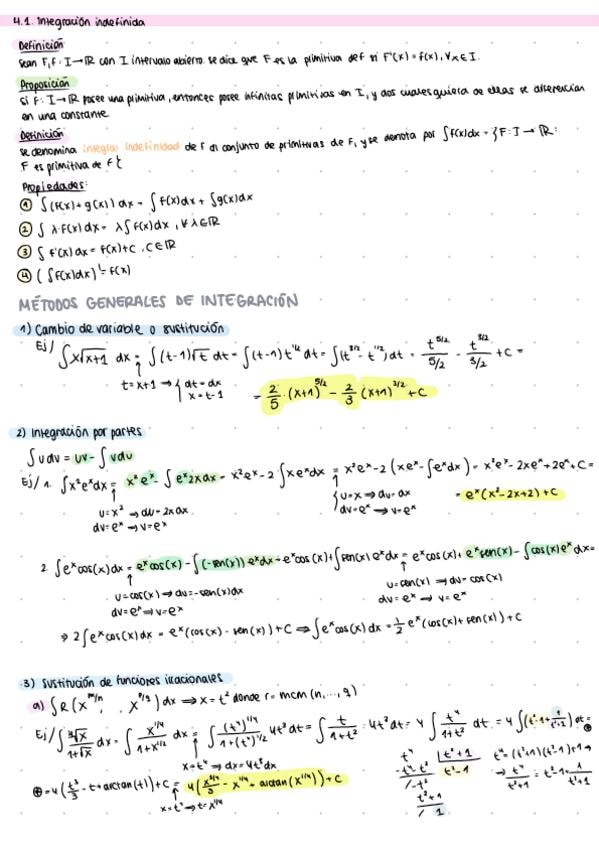 4.1. Integración indefinida
Definición
Sean F,f: I→ℝ con I intervalo abierto. se dice que F es la primitiva de f si F'(x)=f(x), ∀x∈I.
Proposición
Si F: I→ℝ posee una primitiva, entonces posee infinitas primitivas en I, y dos cualesquiera de ellas se diferencian
en una constante.
Definición
se denomina integral indefinidad de f al conjunto de primitivas de f, y se denota por ∫f(x)dx = {F: I→ℝ:
F es primitiva de f}
Propiedades:
① ∫(f(x)+g(x))dx = ∫f(x)dx + ∫g(x)dx
② ∫λ·f(x)dx = λ∫f(x)dx, ∀λ∈ℝ
③ ∫f'(x)dx = f(x)+C, C∈ℝ
④ (∫f(x)dx)' = f(x)
MÉTODOS GENERALES DE INTEGRACIÓN
1) Cambio de variable o sustitución
Ej/ ∫x√(x+1) dx = ∫(t-1)√t dt = ∫(t-1)t^(1/2) dt = ∫(t^(3/2) - t^(1/2)) dt = t^(5/2)/(5/2) - t^(3/2)/(3/2) + C =
t=x+1 → { dt=dx
x=t-1
= 2/5·(x+1)^(5/2) - 2/3(x+1)^(3/2) + C
2) Integración por partes
∫udv = uv - ∫vdu
Ej/ 1. ∫x²eˣdx = x²eˣ - ∫eˣ2xdx = x²eˣ - 2∫xeˣdx = x²eˣ - 2(xeˣ - ∫eˣdx) = x²eˣ - 2xeˣ + 2eˣ + C =
u=x² → du=2xdx
dv=eˣ → v=eˣ
{ u=x ⇒ du=dx
dv=eˣ → v=eˣ
= eˣ(x²-2x+2)+C
2 ∫eˣcos(x)dx = eˣcos(x) - ∫(-sen(x))eˣdx = eˣcos(x) + ∫sen(x)eˣdx = eˣcos(x) + eˣsen(x) - ∫cos(x)eˣdx =
u=cos(x) → du=-sen(x)dx
dv=eˣ → v=eˣ
u=sen(x) → du=cos(x)
dv=eˣ → v=eˣ
⇒ 2∫eˣcos(x)dx = eˣ(cos(x) - sen(x)) + C ⇒ ∫eˣcos(x)dx = 1/2 eˣ(cos(x)+sen(x)) + C
3) Sustitución de funciones irracionales
a) ∫R(x^(m/n), ..., x^(p/q))dx ⇒ x=t² donde r=mcm(n,...,q)
Ej/ ∫ ∜x/(1+√x) dx = ∫ x^(1/4)/(1+x^(1/2)) dx = ∫ (t⁴)^(1/4)/(1+(t⁴)^(1/2)) 4t³dt = ∫ t/(1+t²)·4t³dt = 4∫ t⁴/(1+t²) dt = 4∫(t²-1+1/(t²+1))dt = ⊕
x=t⁴ → dx=4t³dx
⊕ = 4(t³/3 - t + arctan(t)) + C = 4(x^(3/4)/3 - x^(1/4) + arctan(x^(1/4))) + C
x=t⁴ → t=x^(1/4)